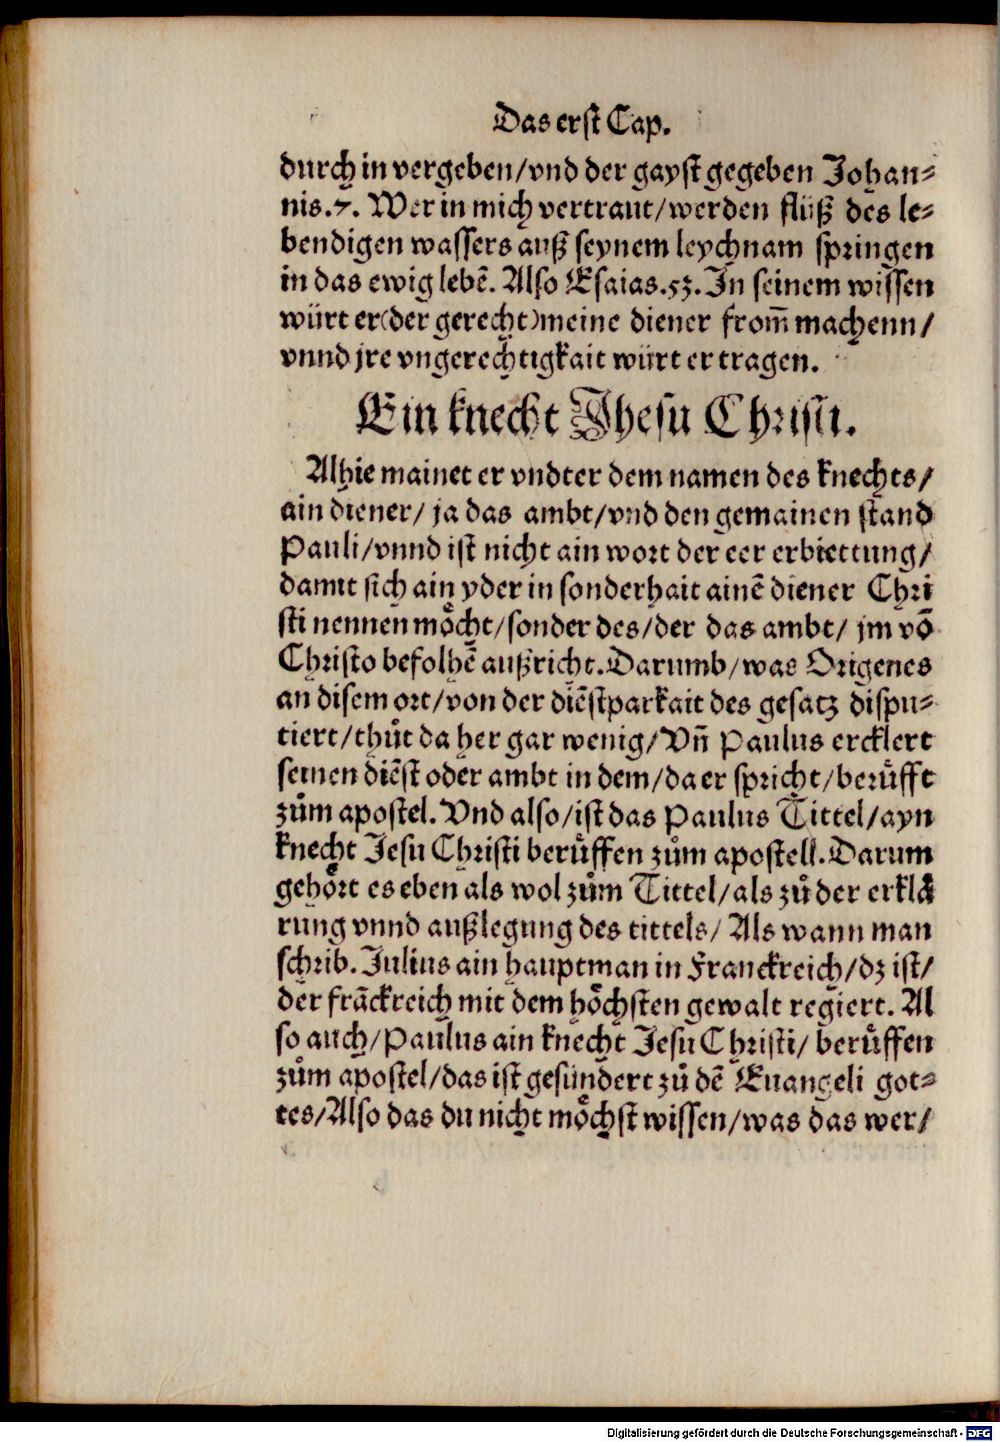 Das erst Cap.
durch in vergeben/vnd der gayst gegeben Johan⸗
nis.7. Wer in mich vertraut/werden flüß des le⸗
bendigen wassers auß seynem leychnam springen
in das ewig lebē. Also Esaias.53. In seinem wissen
würt er(der gerecht)meine diener from̄ machenn/
vnnd jre vngerechtigkait würt er tragen.
Ein knecht Jhesu Christi.
Alhie mainet er vndter dem namen des knechts/
ain diener/ ja das ambt/vnd den gemainen stand
Pauli/vnnd ist nicht ain wort der eer erbiettung/
damit sich ain yder in sonderhait ainē diener Chri
sti nennen moͤcht/sonder des/der das ambt/ jm vō
Christo befolhē außricht.Darumb/was Origenes
an disem ort/von der diēstparkait des gesatz dispu⸗
tiert/thuͦt da her gar wenig/Vn̄ Paulus ercklert
seinen diēst oder ambt in dem/da er spricht/beruͤfft
zuͦm apostel. Vnd also/ist das Paulus Tittel/ayn
knecht Jesu Christi beruͤffen zuͦm apostell.Darum
gehoͤrt es eben als wol zuͦm Tittel/als zuͦ der erklaͤ
rung vnnd außlegung des tittels/ Als wann man
schrib. Julius ain hauptman in Franckreich/dz ist/
der frāckreich mit dem hoͤchsten gewalt regiert. Al
so auch/Paulus ain knecht Jesu Christi/ beruͤffen
zuͦm apostel/das ist gesündert zuͦ dē Euangeli got⸗
tes/Also das du nicht moͤchst wissen/was das wer/
Digitalisierung gefördert durch die Deutsche Forschungsgemeinschaft - DFG